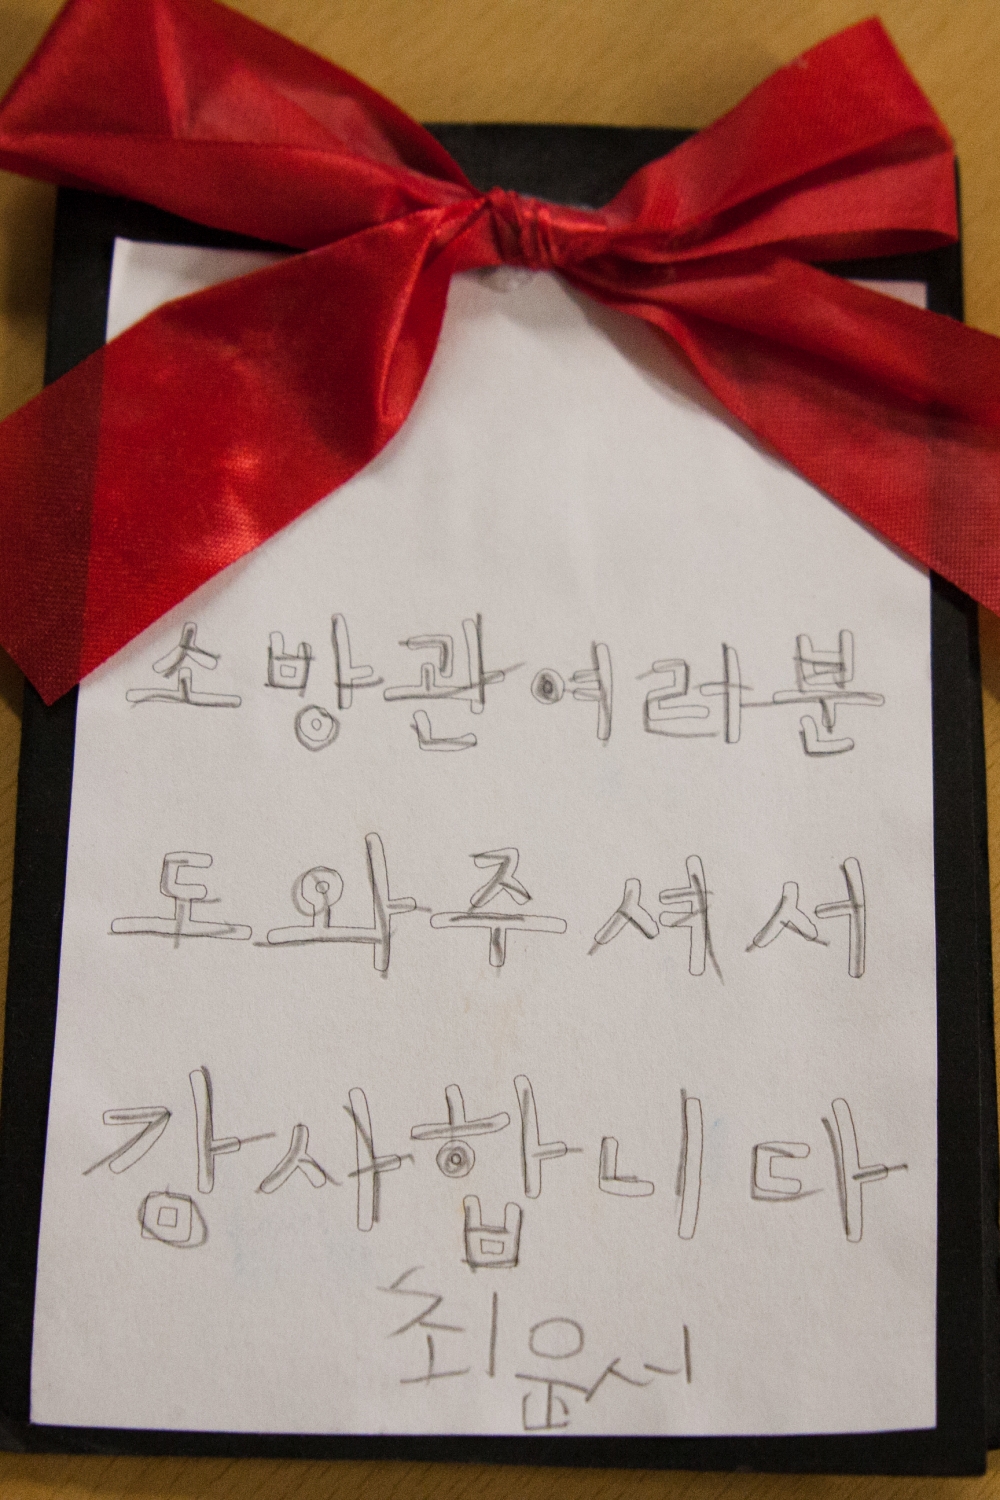 소방관여러분
도와주셔서
강사합니다
최윤서